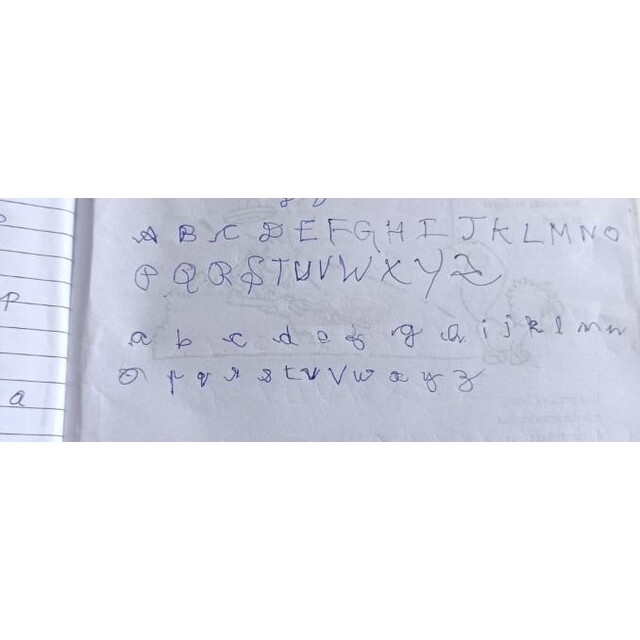 A B C D E F G H I J K L M N O
P Q R S T U V W X Y Z
a b c d e f g h i j k l m n
o p q r s t u v w x y z
p
a